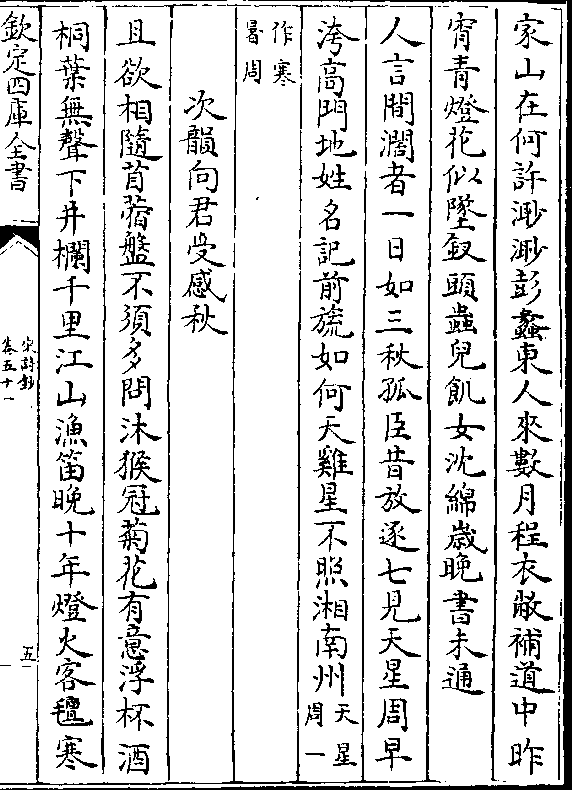 家山在何許渺渺彭蠡東人來數月程衣敝補道中昨
宵青燈花似墜釵頭蟲兒飢女沈綿歳晚書未通
人言閒濶者一日如三秋孤臣昔放逐七見天星周早
洿高門地姓名記前旒如何天雞星不照湘南州天星周一
作寒暑周
次韻向君受感秋
且欲相隨苜蓿盤不須多問沐猴冠菊花有意浮杯酒
桐葉無聲下井欄千里江山漁笛晚十年燈火客氊寒
欽定四庫全書
宋詩鈔
卷五十一
五